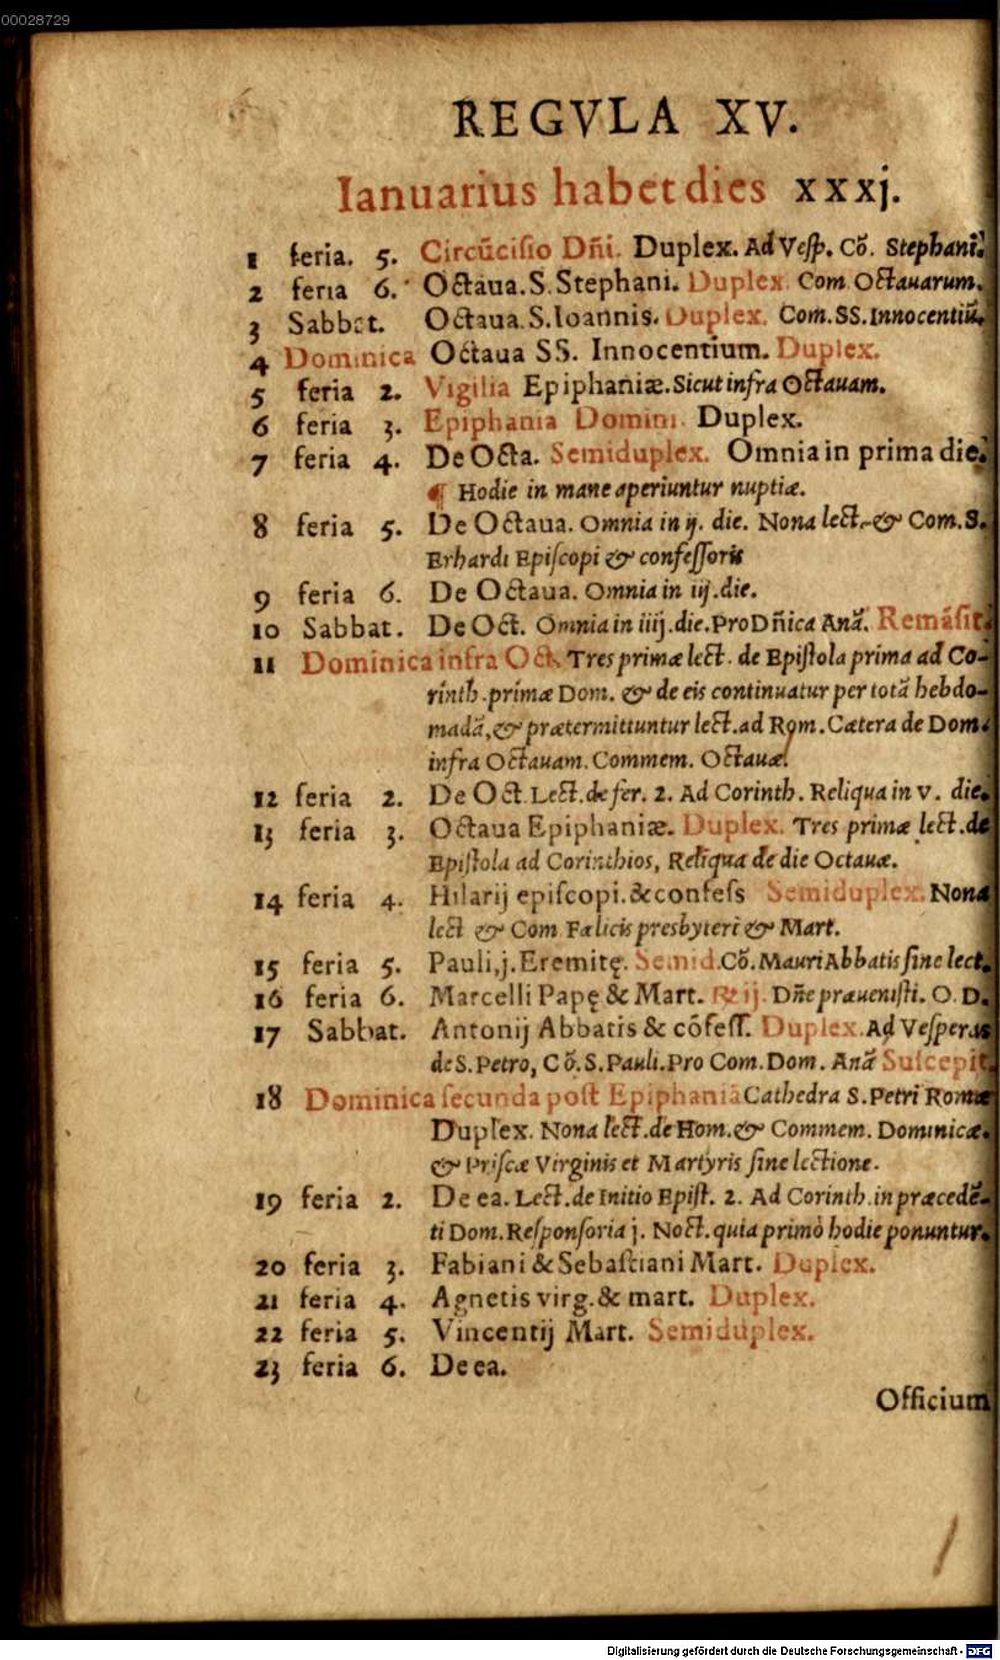 00028729
REGVLA XV.
Ianuarius habet dies xxxj.
1 feria. 5. Circũcisio Dñi. Duplex. Ad Vesp. Cõ. Stephani.
2 feria 6. Octaua. S. Stephani. Duplex. Com. Octauarum.
3 Sabbat. Octaua. S. Ioannis. Duplex. Com. SS. Innocentiũ.
4 Dominica Octaua SS. Innocentium. Duplex.
5 feria 2. Vigilia Epiphaniæ. Sicut infra Octauam.
6 feria 3. Epiphania Domini. Duplex.
7 feria 4. De Octa. Semiduplex. Omnia in prima die.
¶ Hodie in mane aperiuntur nuptiæ.
8 feria 5. De Octaua. Omnia in ij. die. Nona lect. & Com. S.
Erhardi Episcopi & confessoris
9 feria 6. De Octaua. Omnia in iij. die.
10 Sabbat. De Oct. Omnia in iiij. die. Pro Dñica Anã. Remãsit.
11 Dominica infra Oct. Tres primæ lect. de Epistola prima ad Co-
rinth. primæ Dom. & de eis continuatur per totã hebdo-
madã, & prætermittuntur lect. ad Rom. Cætera de Dom.
infra Octauam. Commem. Octauæ.
12 feria 2. De Oct. Lect. de fer. 2. Ad Corinth. Reliqua in v. die.
13 feria 3. Octaua Epiphaniæ. Duplex. Tres primæ lect. de
Epistola ad Corinthios, Reliqua de die Octauæ.
14 feria 4. Hilarij episcopi. & confess Semiduplex. Nona
lect & Com Fælicis presbyteri & Mart.
15 feria 5. Pauli, j. Eremitę. Semid. Cõ. Mauri Abbatis sine lect.
16 feria 6. Marcelli Papę & Mart. ij. Dñe præuenisti. O. D.
17 Sabbat. Antonij Abbatis & cõfess. Duplex. Ad Vesperas
de S. Petro, Cõ. S. Pauli. Pro Com. Dom. Anã Suscepit.
18 Dominica secunda post Epiphaniã Cathedra S. Petri Romæ
Duplex. Nona lect. de Hom. & Commem. Dominicæ.
& Priscæ Virginis et Martyris sine lectione.
19 feria 2. De ea. Lect. de Initio Epist. 2. Ad Corinth. in præcedẽ-
ti Dom. Responsoria j. Noct. quia primò hodie ponuntur.
20 feria 3. Fabiani & Sebastiani Mart. Duplex.
21 feria 4. Agnetis virg. & mart. Duplex.
22 feria 5. Vincentij Mart. Semiduplex.
23 feria 6. De ea.
Officium
Digitalisierung gefördert durch die Deutsche Forschungsgemeinschaft - DFG